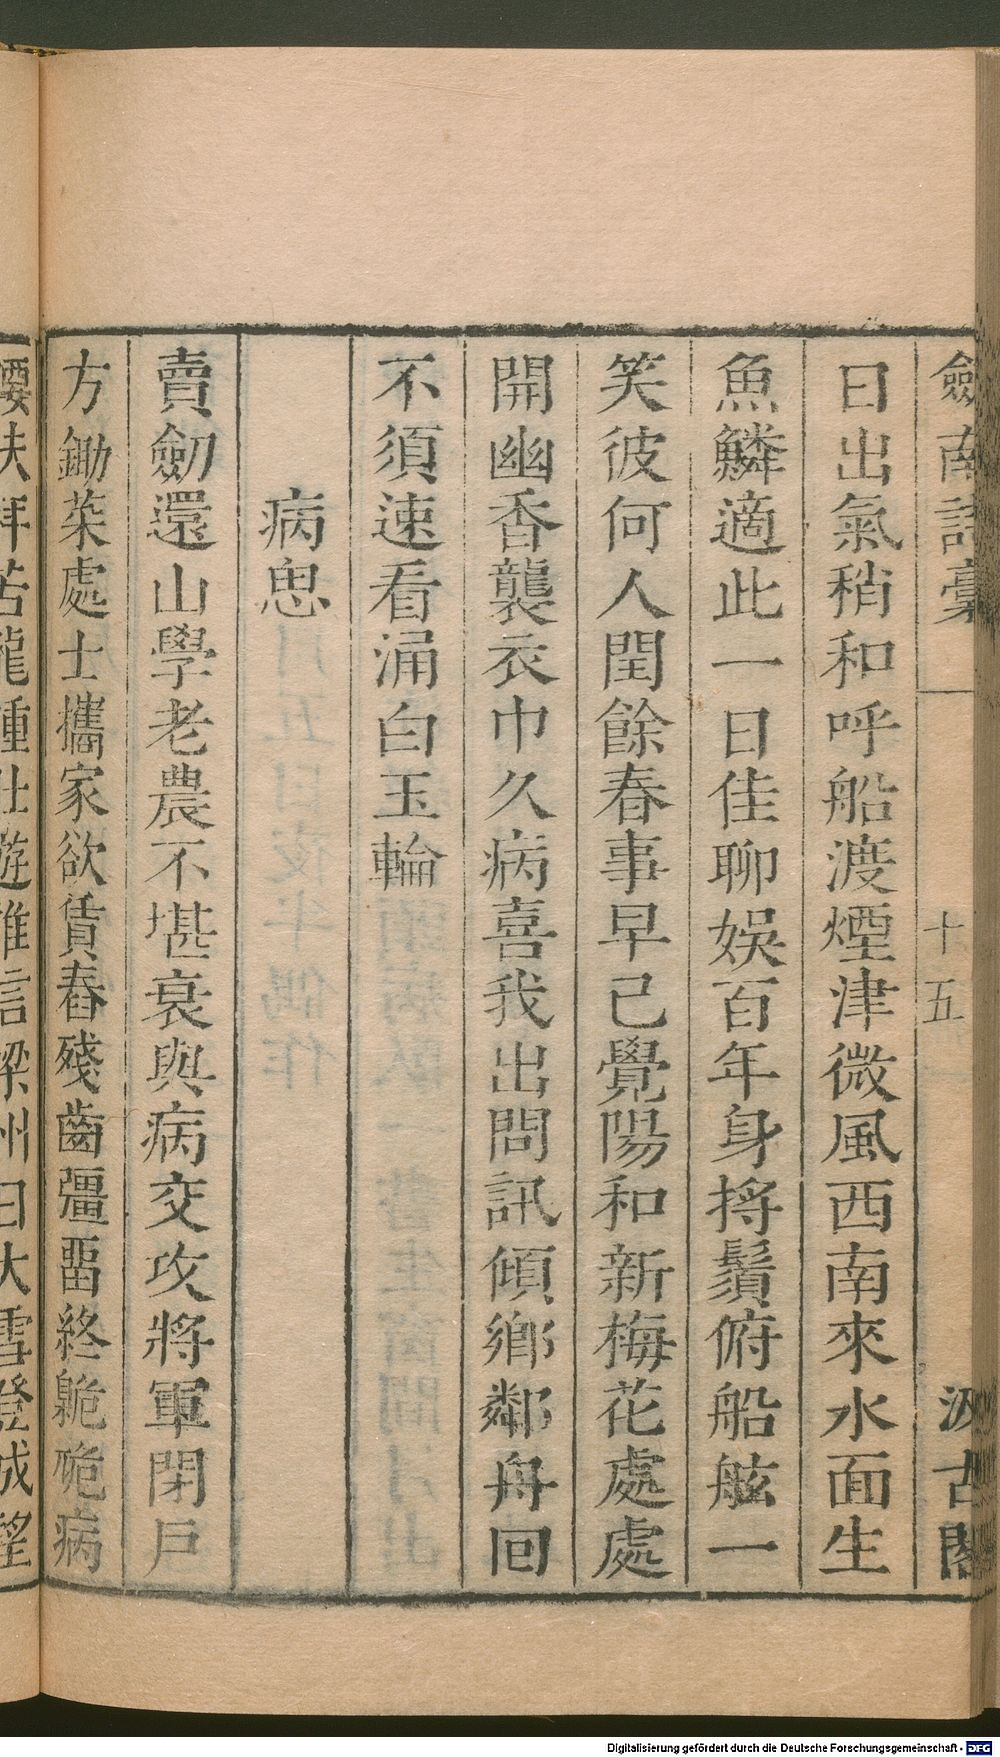 劍南詩稾
十五
汲古閣
日出氣稍和呼船渡煙津微風西南來水面生
魚鱗適此一日佳聊娛百年身捋鬚俯船舷一
笑彼何人閏餘春事早已覺陽和新梅花處處
開幽香襲衣巾久病喜我出問訊傾鄉鄰舟回
不須速看涌白玉輪
病思
賣劒還山學老農不堪衰與病交攻將軍閉戶
方鋤菜處士攜家欲賃舂殘齒彊畱終臲硊病
腰扶拜苦龍鍾壯遊誰言梁州日大雪登城望
Digitalisierung gefördert durch die Deutsche Forschungsgemeinschaft - DFG